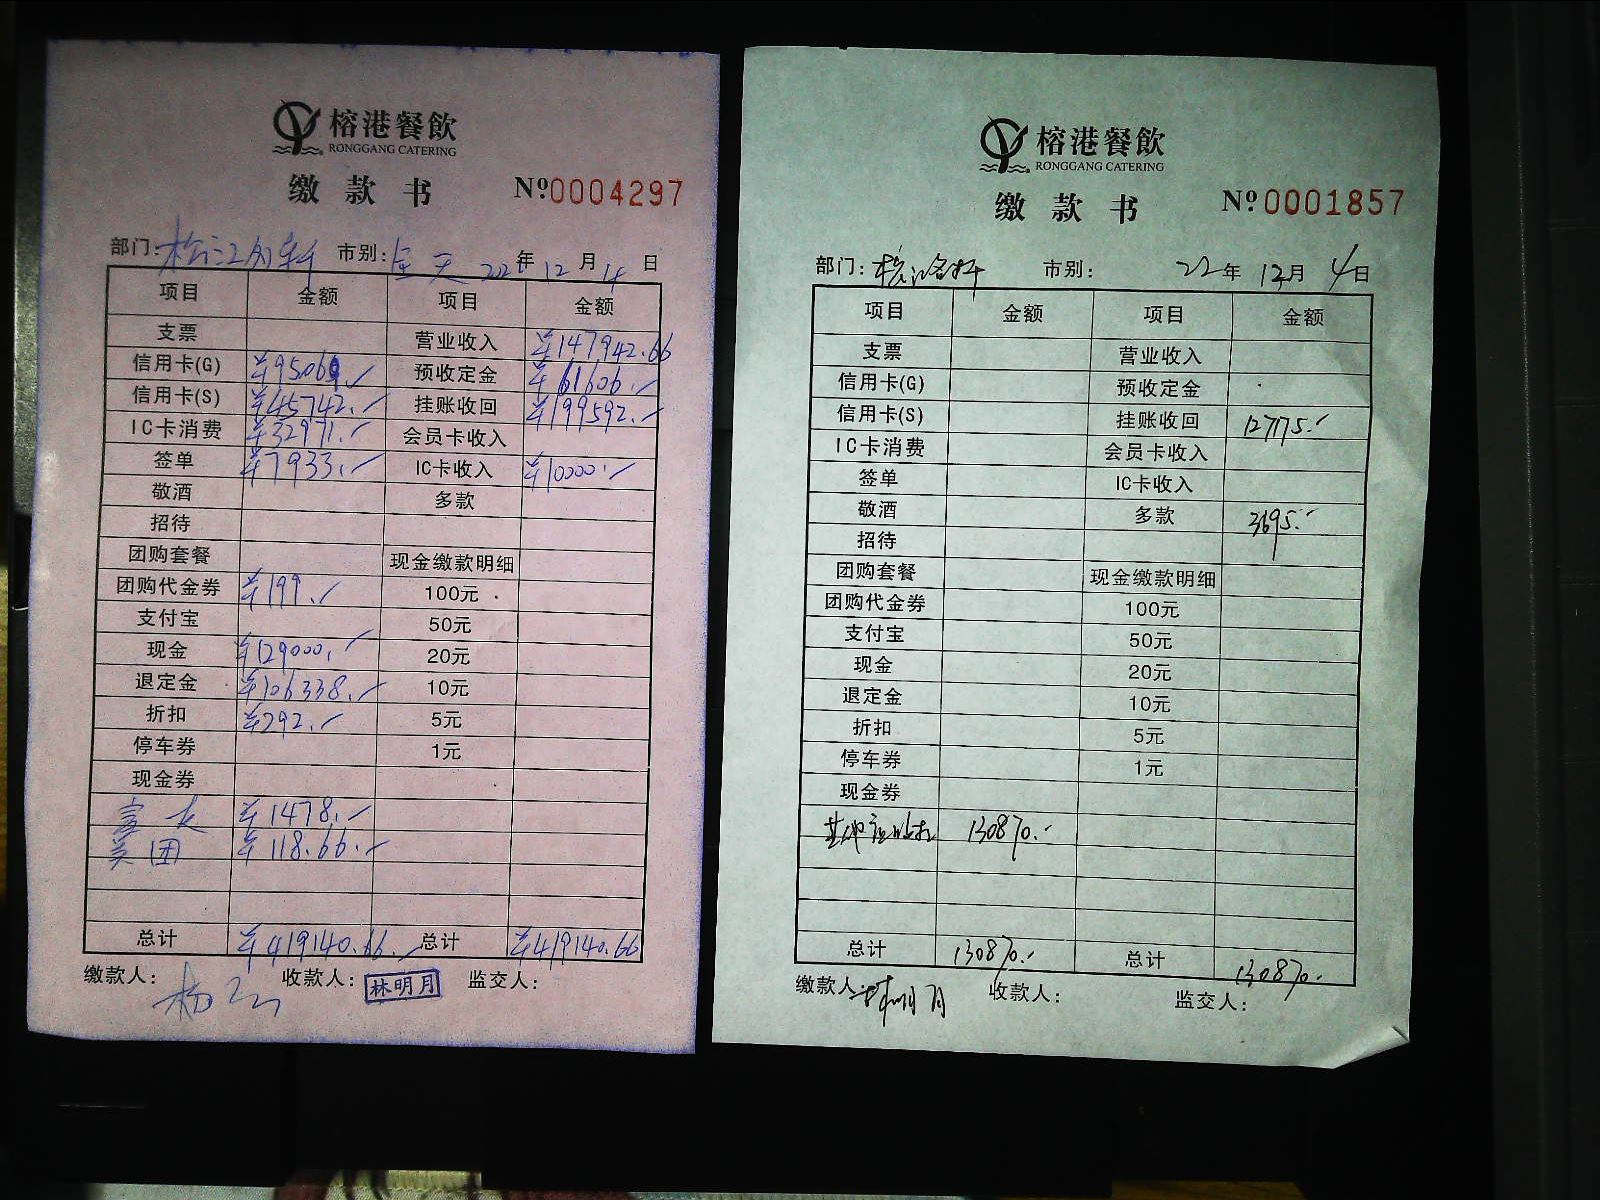 榕港餐飲
RONGGANG CATERING
缴款书
№0004297
部门: 市别: 全天 22年12月4日
项目 金额 项目 金额
支票 营业收入 ¥147942.66
信用卡(G) ¥95069.- 预收定金 ¥61606.-
信用卡(S) ¥45742.- 挂账收回 ¥199592.-
IC卡消费 ¥32971.- 会员卡收入
签单 ¥7933.- IC卡收入 ¥10000.-
敬酒 多款
招待
团购套餐 现金缴款明细
团购代金券 ¥199.- 100元
支付宝 50元
现金 ¥129000.- 20元
退定金 ¥106338.- 10元
折扣 ¥292.- 5元
停车券 1元
现金券
¥1478.-
美团 ¥118.66.-
总计 ¥419140.66.- 总计 ¥419140.66
缴款人: 收款人: 林明月 监交人:
榕港餐飲
RONGGANG CATERING
缴款书
№0001857
部门: 市别: 22年12月4日
项目 金额 项目 金额
支票 营业收入
信用卡(G) 预收定金
信用卡(S) 挂账收回 127175.-
IC卡消费 会员卡收入
签单 IC卡收入
敬酒 多款 3695.-
招待
团购套餐 现金缴款明细
团购代金券 100元
支付宝 50元
现金 20元
退定金 10元
折扣 5元
停车券 1元
现金券
130870.-
总计 130870.- 总计 130870.-
缴款人: 林明月 收款人: 监交人: